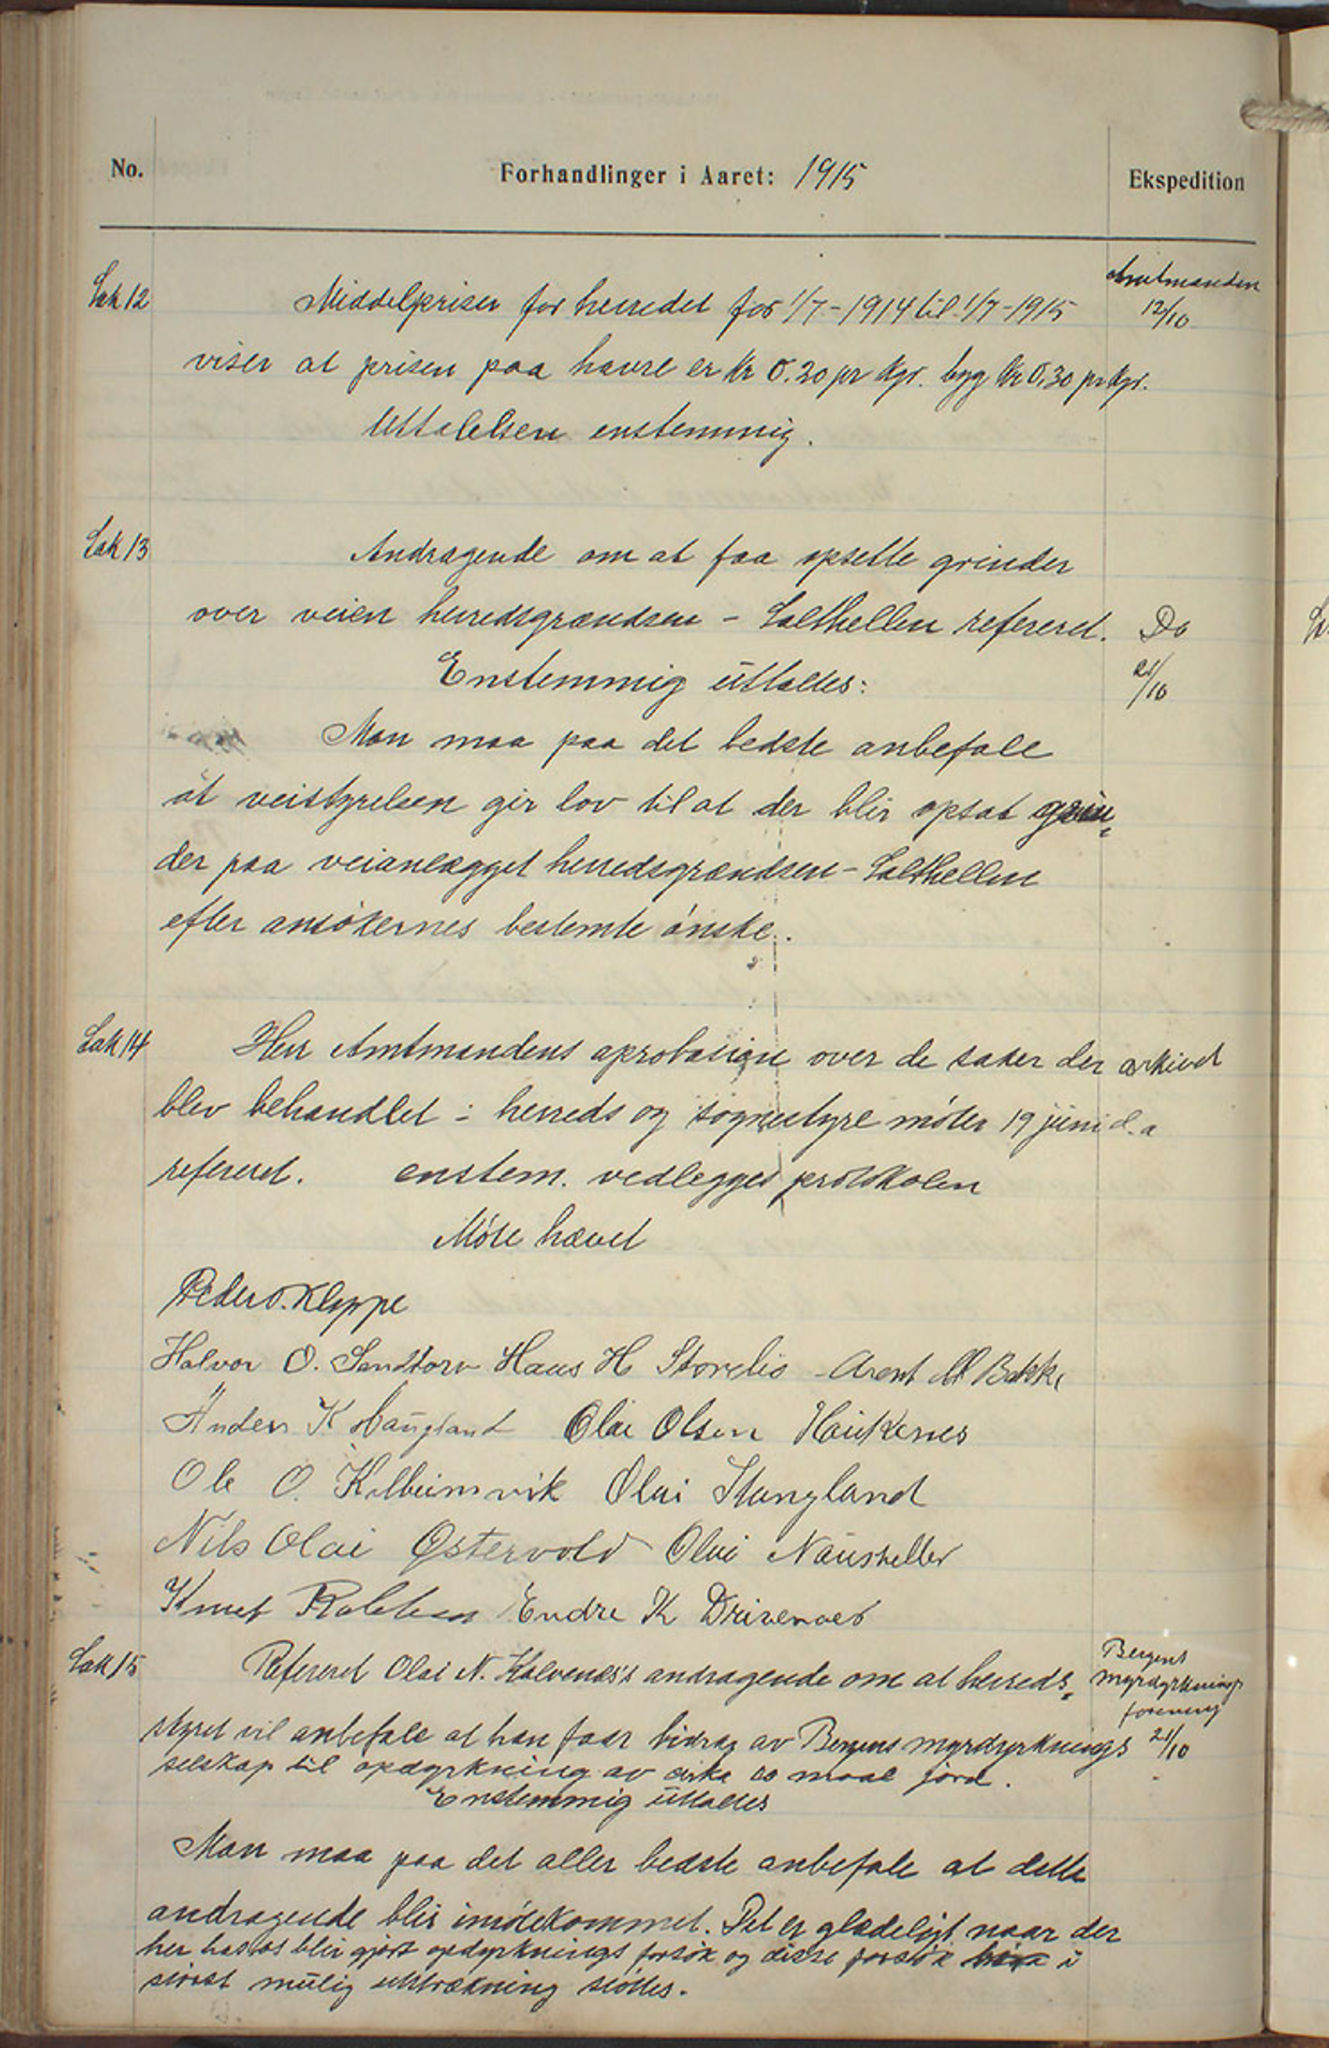 No.
Forhandlinger i Aaret: 1915
Ekspedition
Sak 12
Middelpriser for herredet for 1/7-1914 til 1/7-1915
Amtmanden
12/10
viser at prisen paa havre er Kr 0.20 pr Kgr. byg Kr 0,30 pr Kgr.
Uttalelsen enstemmig.
Sak 13
Andragende om at faa opsette grinder
over veien herredsgrændsen - Salthellen referert.
Do
21/10
Enstemmig uttaltes:
Man maa paa det bedste anbefale
at veistyrelsen gir lov til at der blir opsat grin-
der paa veianlægget herredsgrændsen - Salthellen
efter ansøkernes bestemte ønske.
Sak 14
Herr Amtmandens aprobasion over de saker der
arkivet
blev behandlet i herreds og sognestyre møter 19 juni d.a
referert. enstem. vedlegges protokolen
Møte hævet
Peder O. Kleppe
Halvor O. Sandtorv Hans H Storelio Arent M Bakke
Anders K Haugland Olai Olsen Haukenes
Ole O. Kalheimsvik Olai Stangland
Nils Olai Østervold Olai Naustheller
Knut Endre K Drivenæs
Sak 15
Referert Olai N. Kalvenæs's andragende om at herreds-
Bergens
myrdyrknings
forening
21/10
styret vil anbefale at han faar bidrag av Bergens myrdyrknings
selskap til opdyrkning av cirka 10 maal jord.
Enstemmig uttaltes
Man maa paa det aller bedste anbefale at dette
andragende blir imøtekommet. Det er glædeligt naar der
her hos os blir gjort opdyrknings forsøk og disse forsøk i
størst mulig utstrækning støttes.